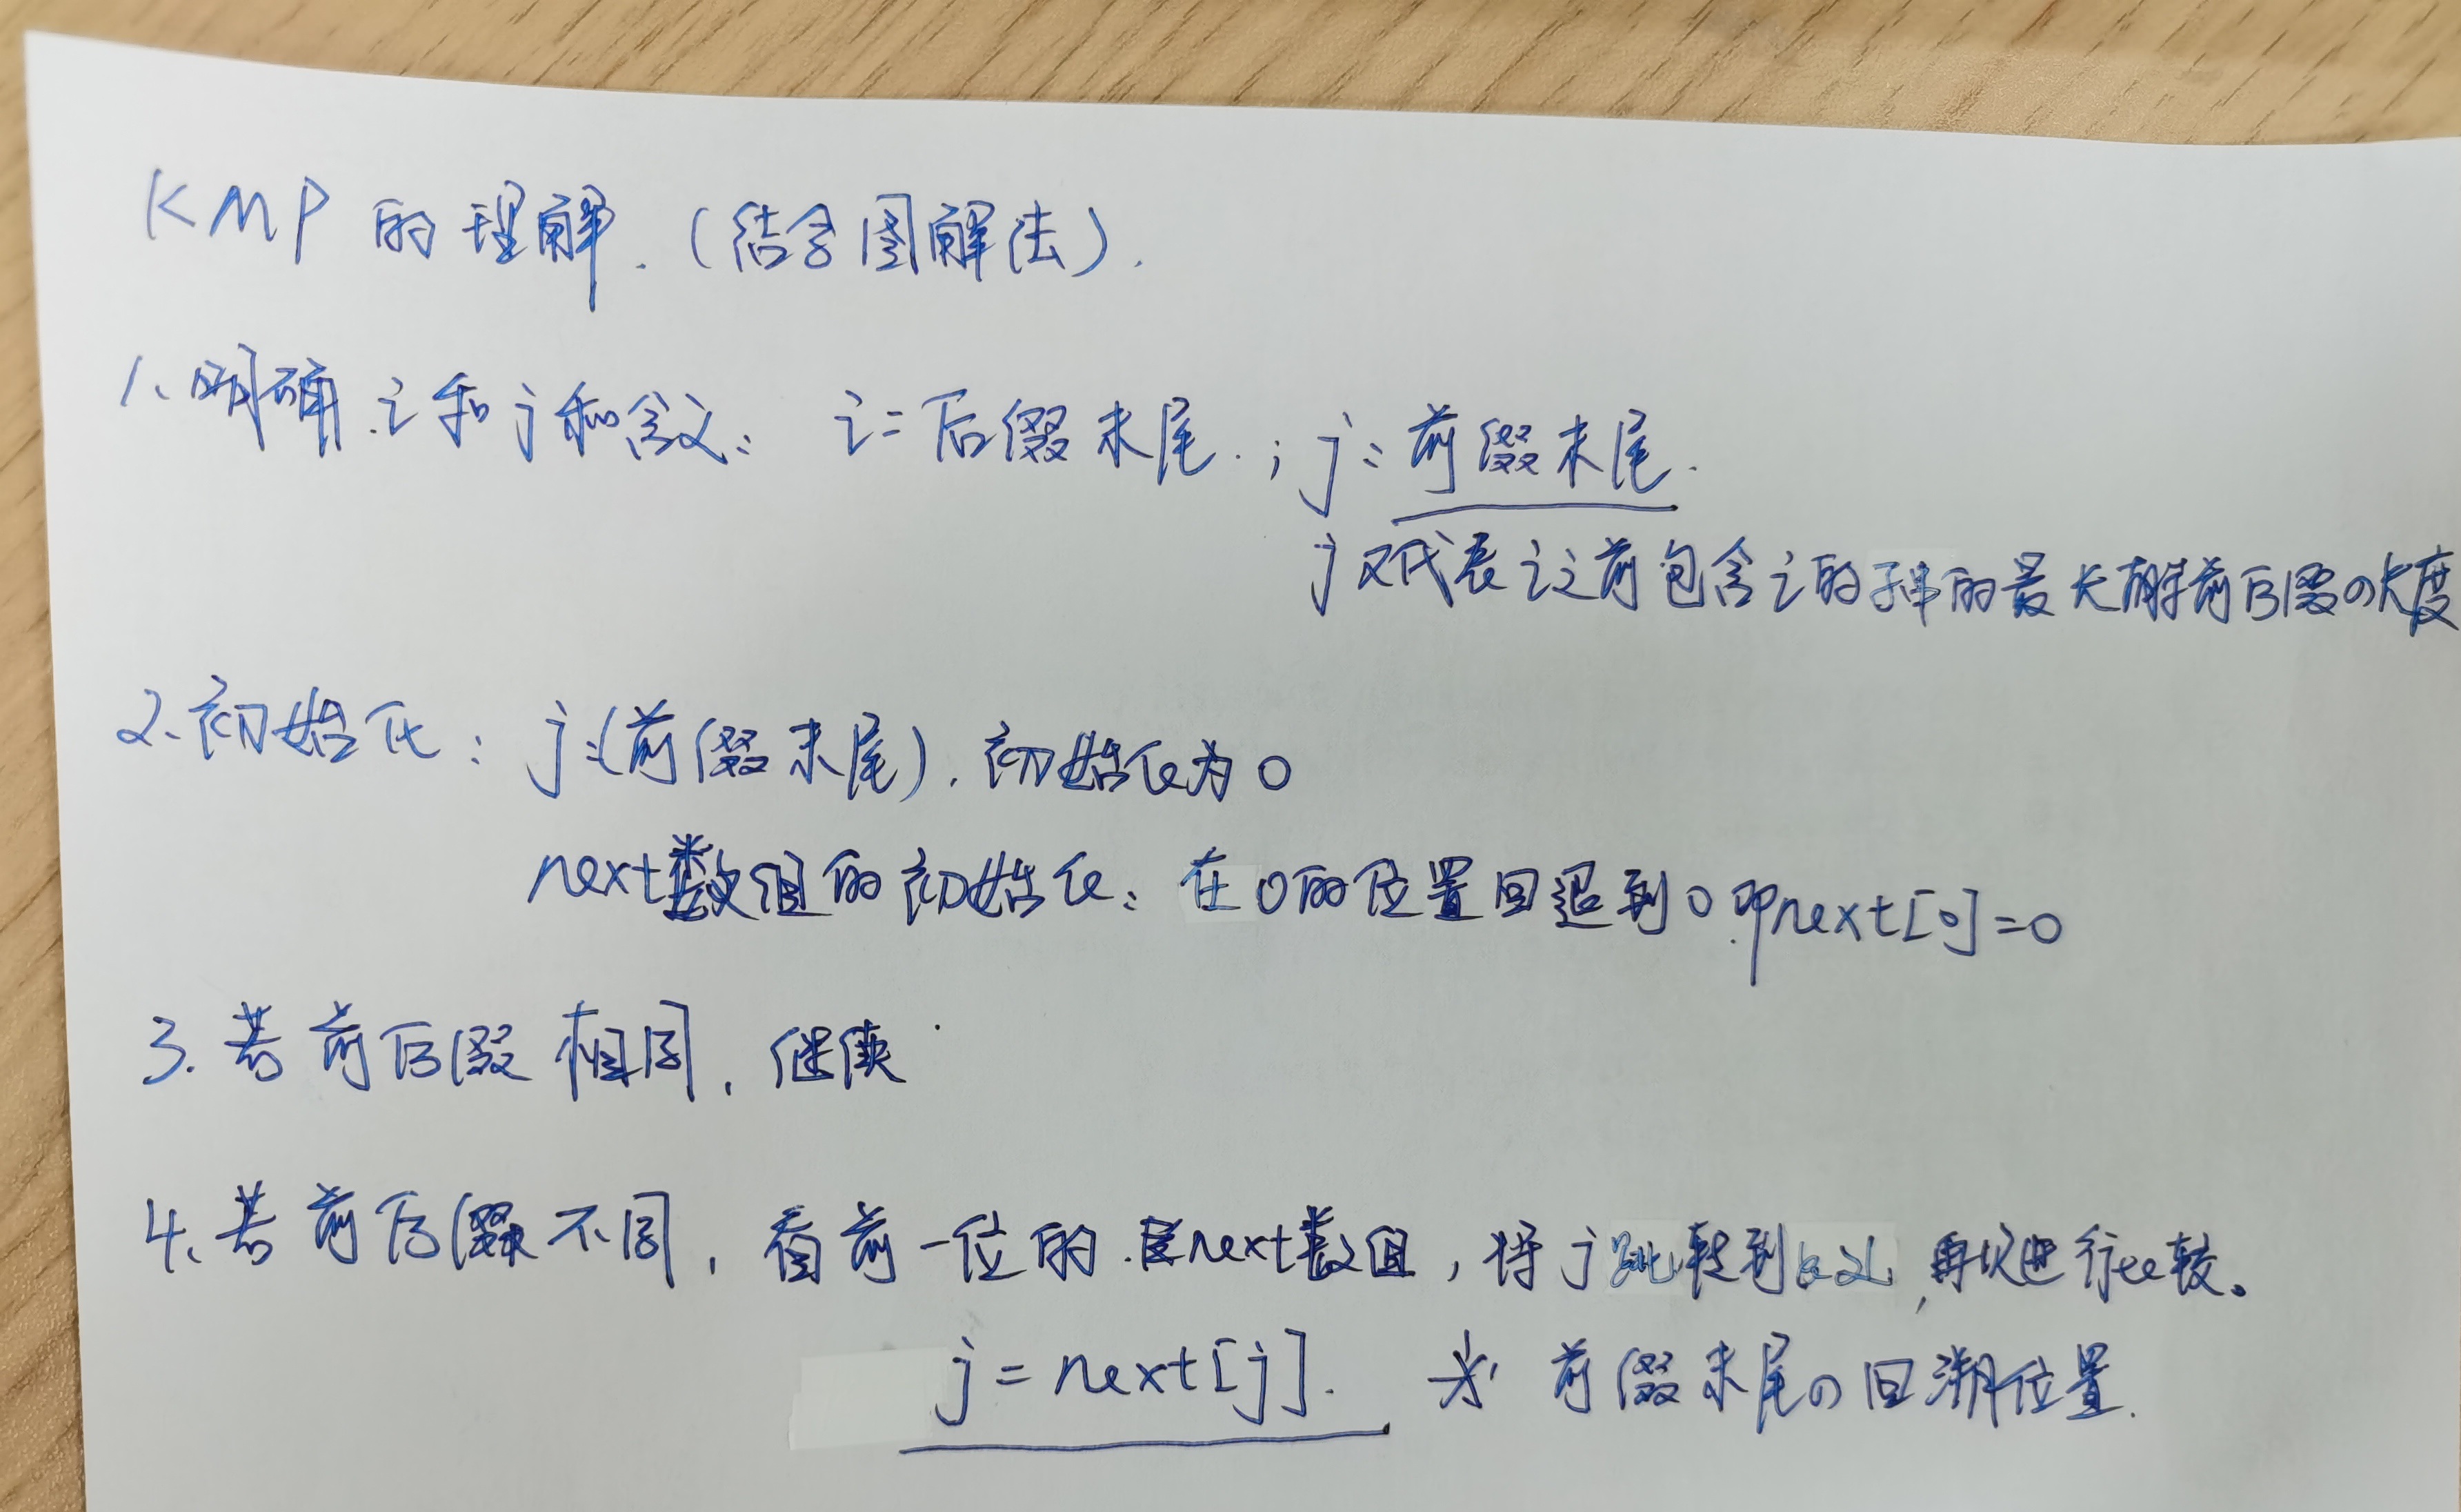 KMP 的理解.(结合图解法).
1、明确.i和j和含义: i:后缀末尾.; j:前缀末尾.
j又代表i之前包含i的子串的最大相等前后缀の长度
2、初始化: j:(前缀末尾).初始化为0
next数组的初始化: 在0的位置回退到0.即next[0]=0
3.若前后缀相同,继续
4、若前后缀不同,看前一位的.next数组,将j跳转到 ,再次进行比较。
j=next[j]. 求 前缀末尾の回溯位置.